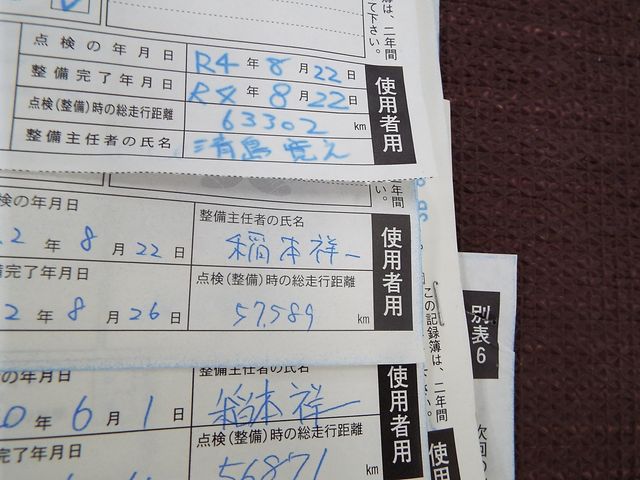 簿は、二年間
て下さい。
点検の年月日 R4年8月22日
整備完了年月日 R4年8月22日
点検(整備)時の総走行距離 63302 km
整備主任者の氏名
使用者用
年間
い。
検の年月日 2年8月22日
整備主任者の氏名 稲本祥一
備完了年月日 2年8月26日
点検(整備)時の総走行距離 57,589 km
使用者用
の年月日 0年6月1日
整備主任者の氏名 稲本祥一
完了年月日
点検(整備)時の総走行距離 56871 km
使用者用
この記録簿は、二年間
使用
別表6
次回の